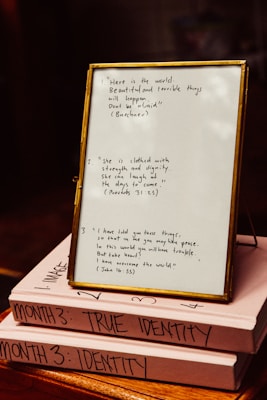 1. "Here is the world.
Beautiful and terrible things
will happen.
Dont be afraid."
(Buechner)
2. "She is clothed with
strength and dignity.
She can laugh at
the days to come."
(Proverbs 31:25)
3 "I have told you these things,
so that in me you may have peace.
In this world you will have trouble.
But take heart!
I have overcome the world!"
(John 16:33)
1. IMAGE
2
3
MONTH 3: TRUE IDENTITY
MONTH 3: IDENTITY